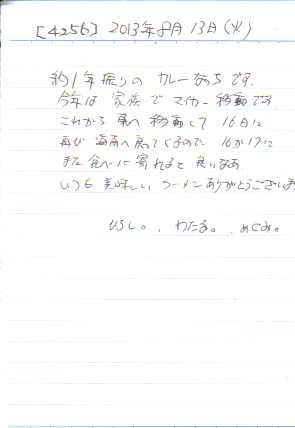 [4256] 2013年8月13日(火)
約1年振りの カレーなっちです。
今年は 家族で マイカー移動です
これから 東へ移動して 16日に
再び 海南へ戻ってくるので、16か17に
また食べに寄れると良いなぁ
いつも美味しいラーメンありがとうございま
ひろし。、わたる。、めぐみ。